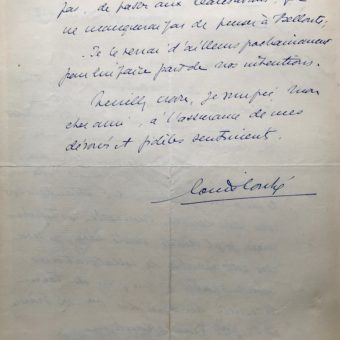 pas de passer aux réalisations, je
ne manquerai pas de penser à
Je le verrai d'ailleurs prochainement
pour lui faire part de nos intentions.
Veuillez croire, je vous prie, mon
cher ami, à l'assurance de mes
dévoués et fidèles sentiments.